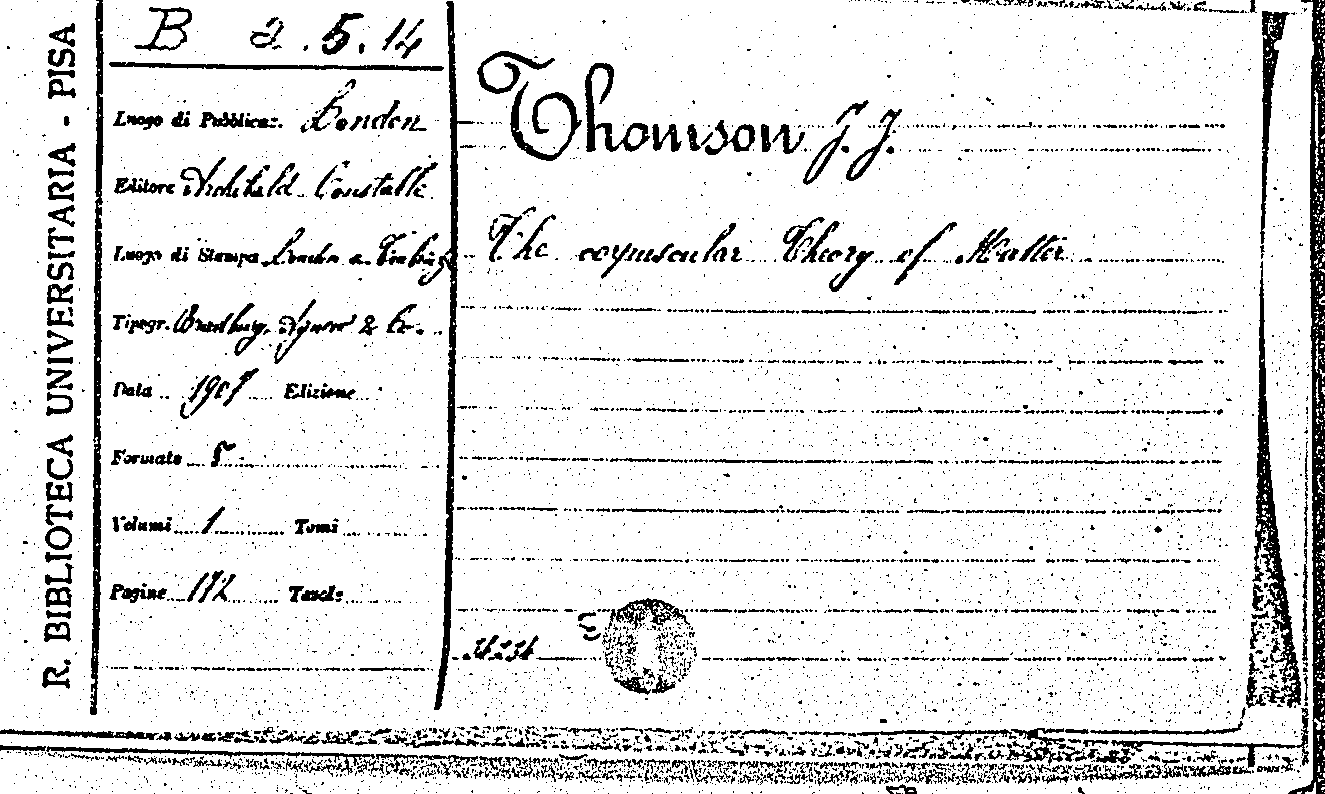 R. BIBLIOTECA UNIVERSITARIA - PISA
B 2.5.14
Luogo di Pubblicaz. London
Editore Archibald Constable
Luogo di Stampa London a.
Tipogr. Bradbury, Agnew & Co.
Data 1907 Edizione
Formato 8°
Volumi 1 Tomi
Pagine 172 Tavole
Thomson J. J.
The corpuscular Theory of Matter